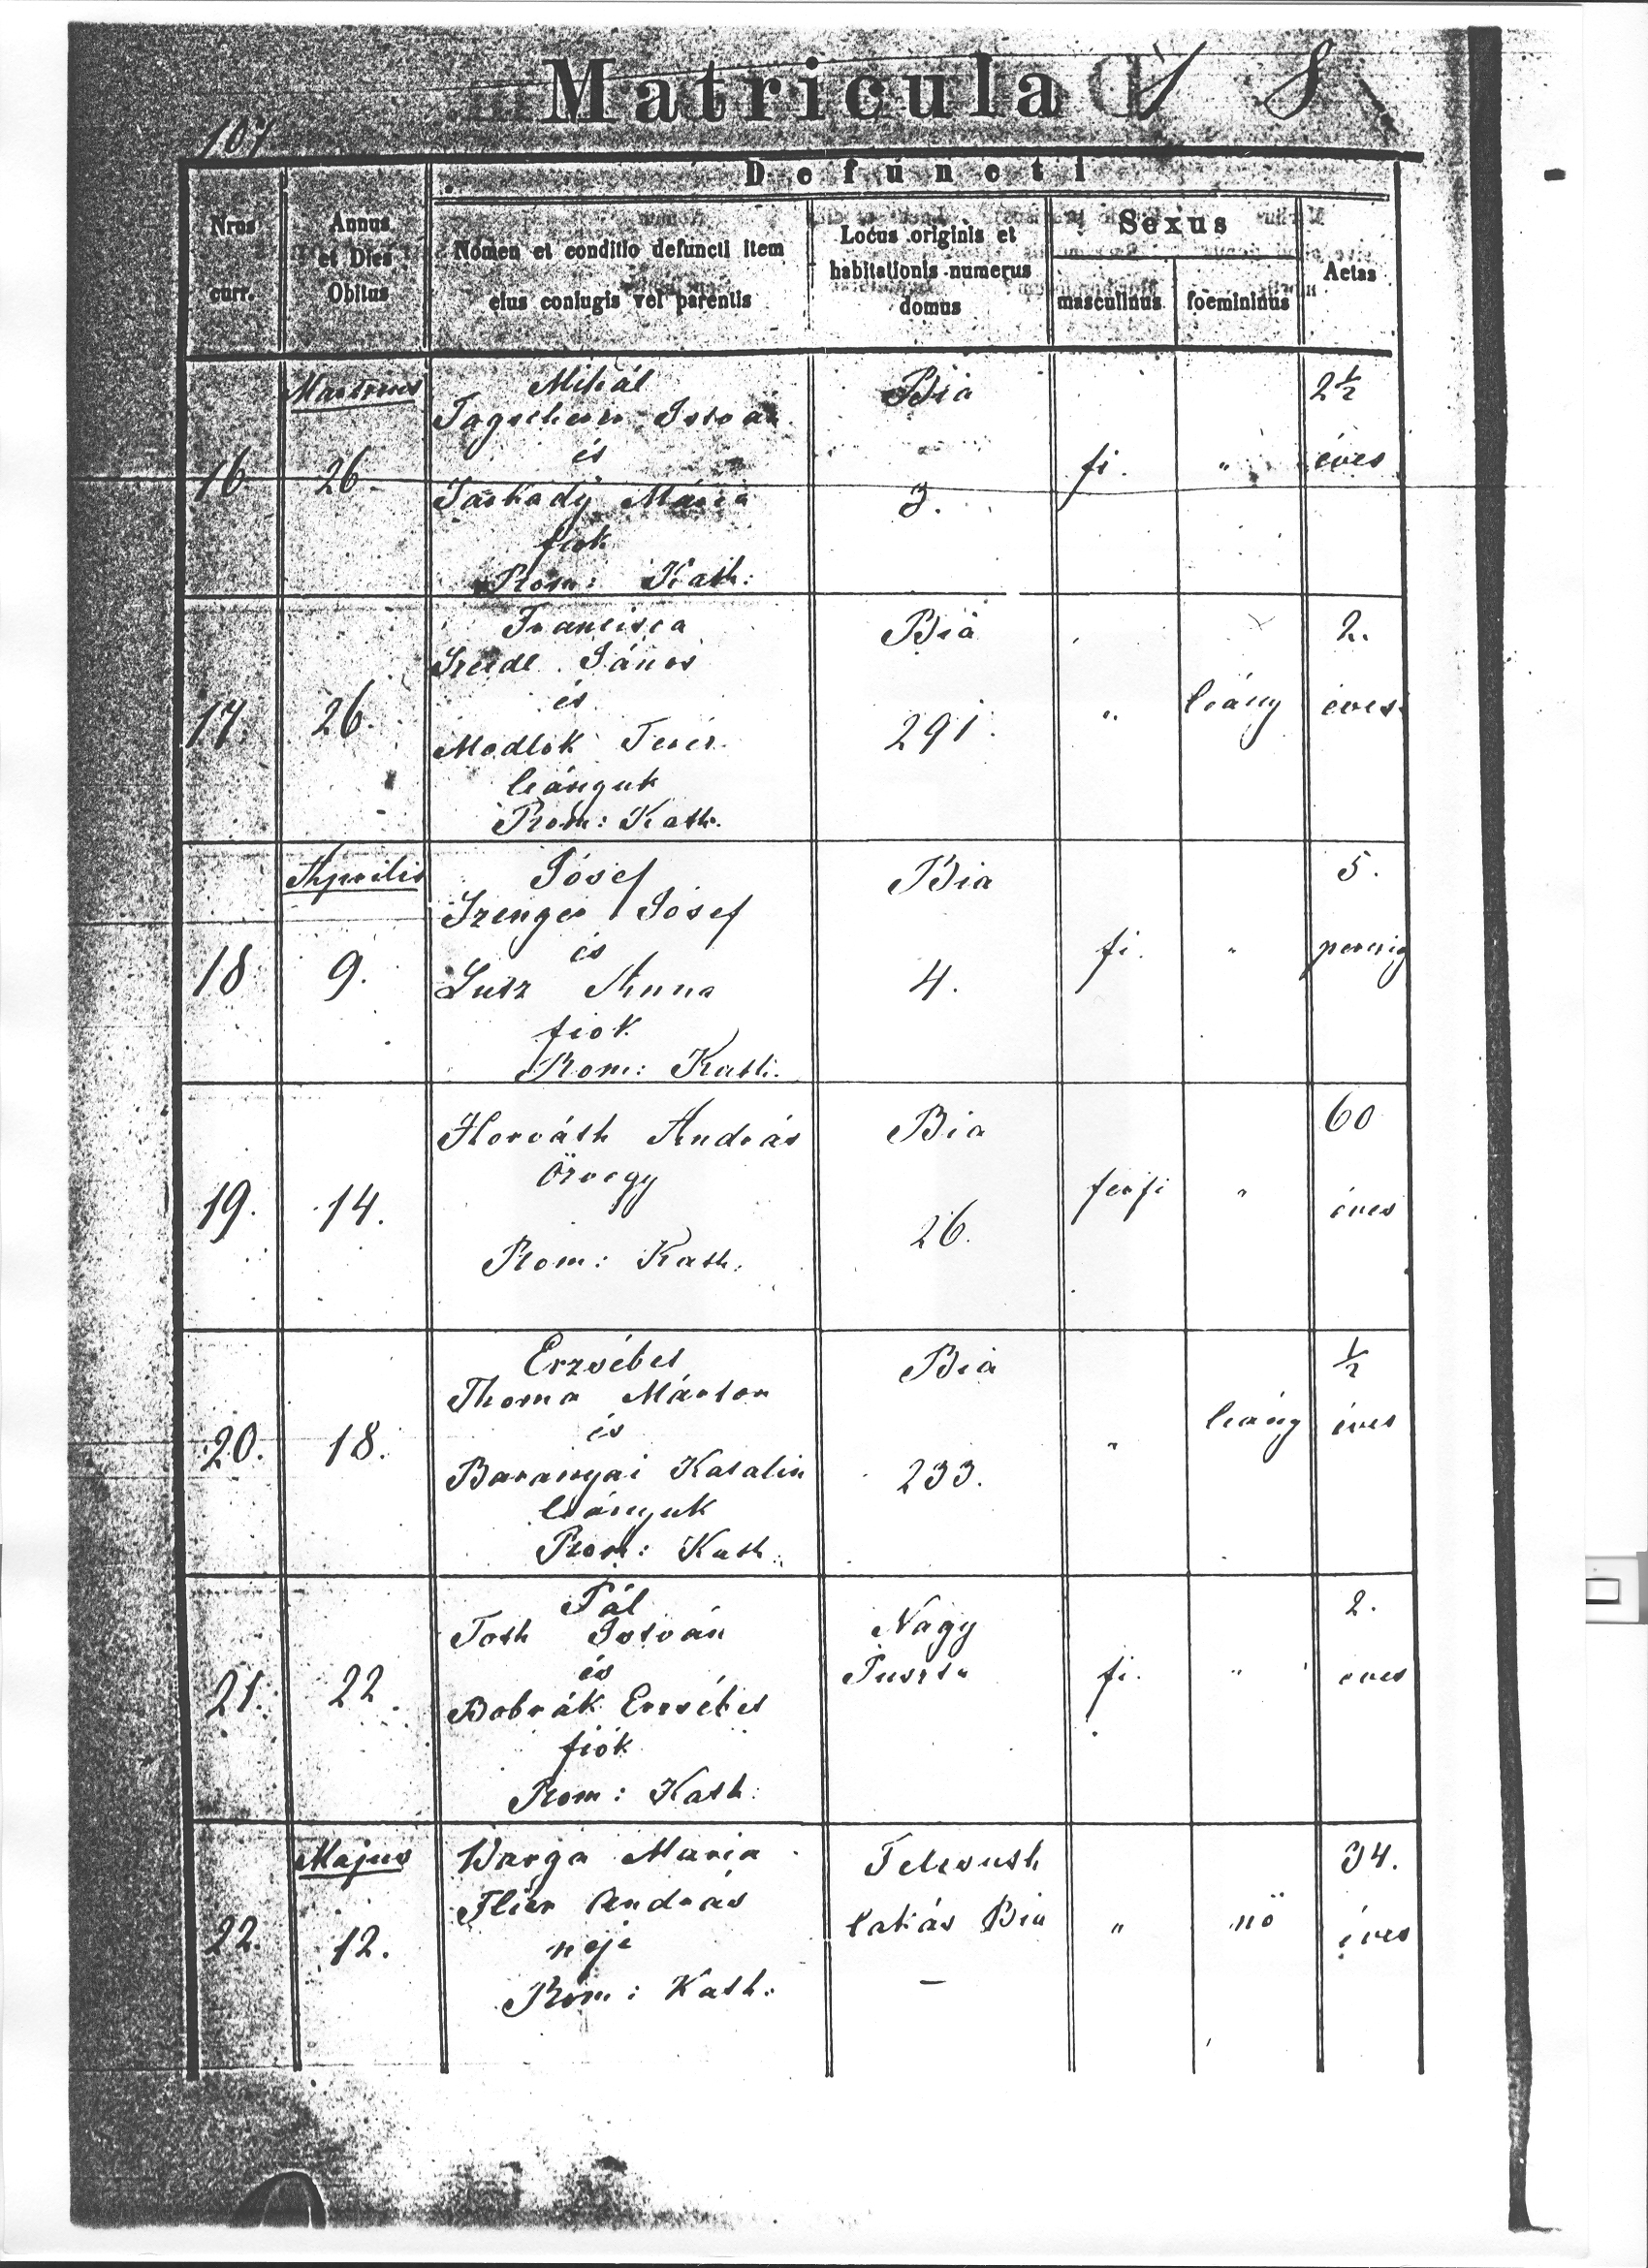 Matricula 1 8
107
Defuncti
Nrus curr.
Annus et Dies Obitus
Nomen et conditio defuncti item eius coniugis vel parentis
Locus originis et habitationis numerus domus
Sexus
masculinus
foemininus
Aetas
Martius
Mihál
Bia
2½
István
és
16
26
fi.
"
éves
Tarkady Mária
3.
fiok
Rom: Kath:
Francisca
Bia
2.
Szeidl János
és
17
26.
"
leány
éves
Modlok Terér.
291.
leányuk
Rom: Kath.
Aprilis
Jósef
Bia
5.
Szenger Jósef
és
18
9.
fi.
"
perczig
Lutz Anna
4.
fiok
Rom: Kath.
Horváth András
Bia
60
özvegy
19.
14.
férfi
"
éves
26.
Rom: Kath.
Erzsébet
Bia
½
Thoma Márton
és
20.
18.
"
leány
éves
Baranyai Katalin
233.
leányuk
Rom: Kath.
Pál
2.
Toth István
Nagy
és
Puszta
21.
22.
fi.
"
eves
Bobrák Erzsébet
fiók
Rom: Kath:
Majus
Warga Maria
Telesush
34.
Flier András
lakás Bia
22.
12.
neje
"
nö
éves
Rom: Kath.
–